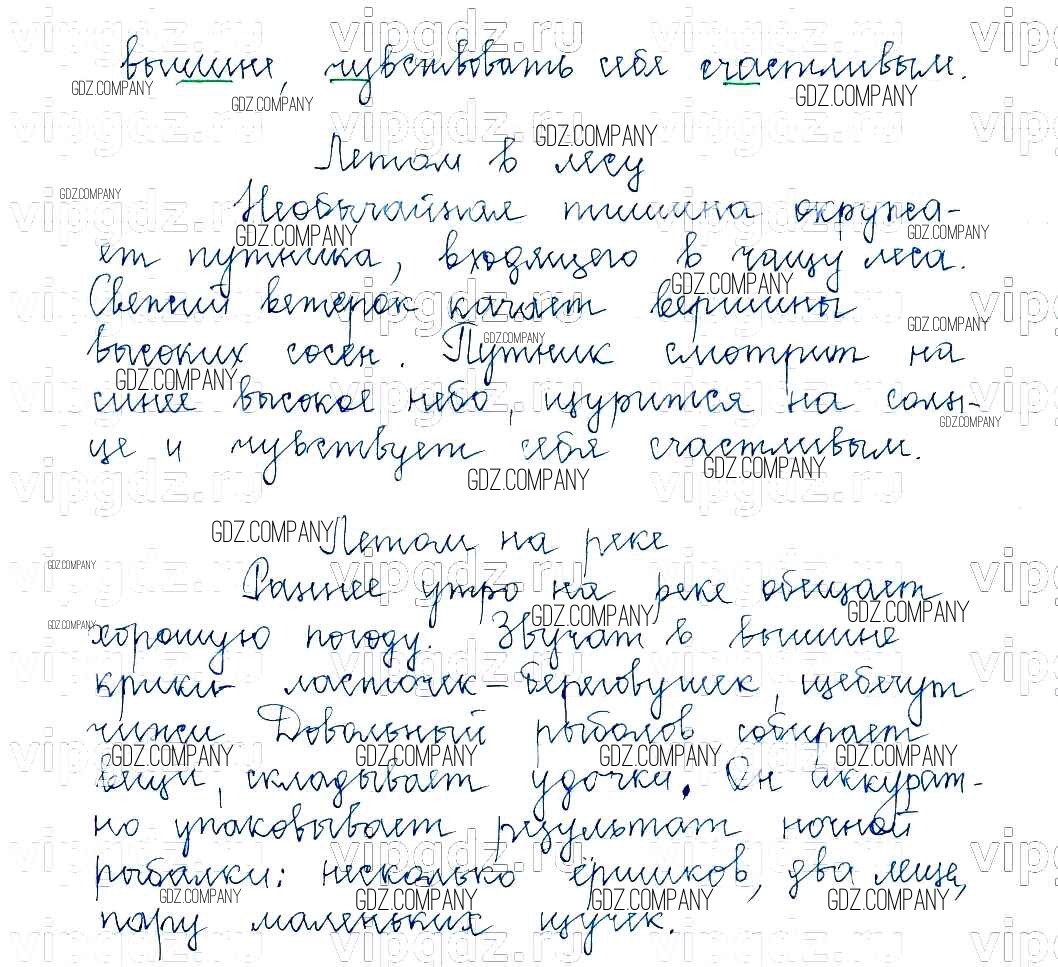 вышине, чувствовать себя счастливым.
Летом в лесу
Необычайная тишина окружа-
ет путника, входящего в чащу леса.
Свежий ветерок качает вершины
высоких сосен. Путник смотрит на
синее высокое небо, щурится на солн-
це и чувствует себя счастливым.
Летом на реке
Раннее утро на реке обещает
хорошую погоду. Звучат в вышине
крики ласточек-береговушек, щебечут
чижи. Довольный рыболов собирает
вещи, складывает удочки. Он аккурат-
но упаковывает результат ночной
рыбалки: несколько ёршиков, два леща,
пару маленьких щучек.